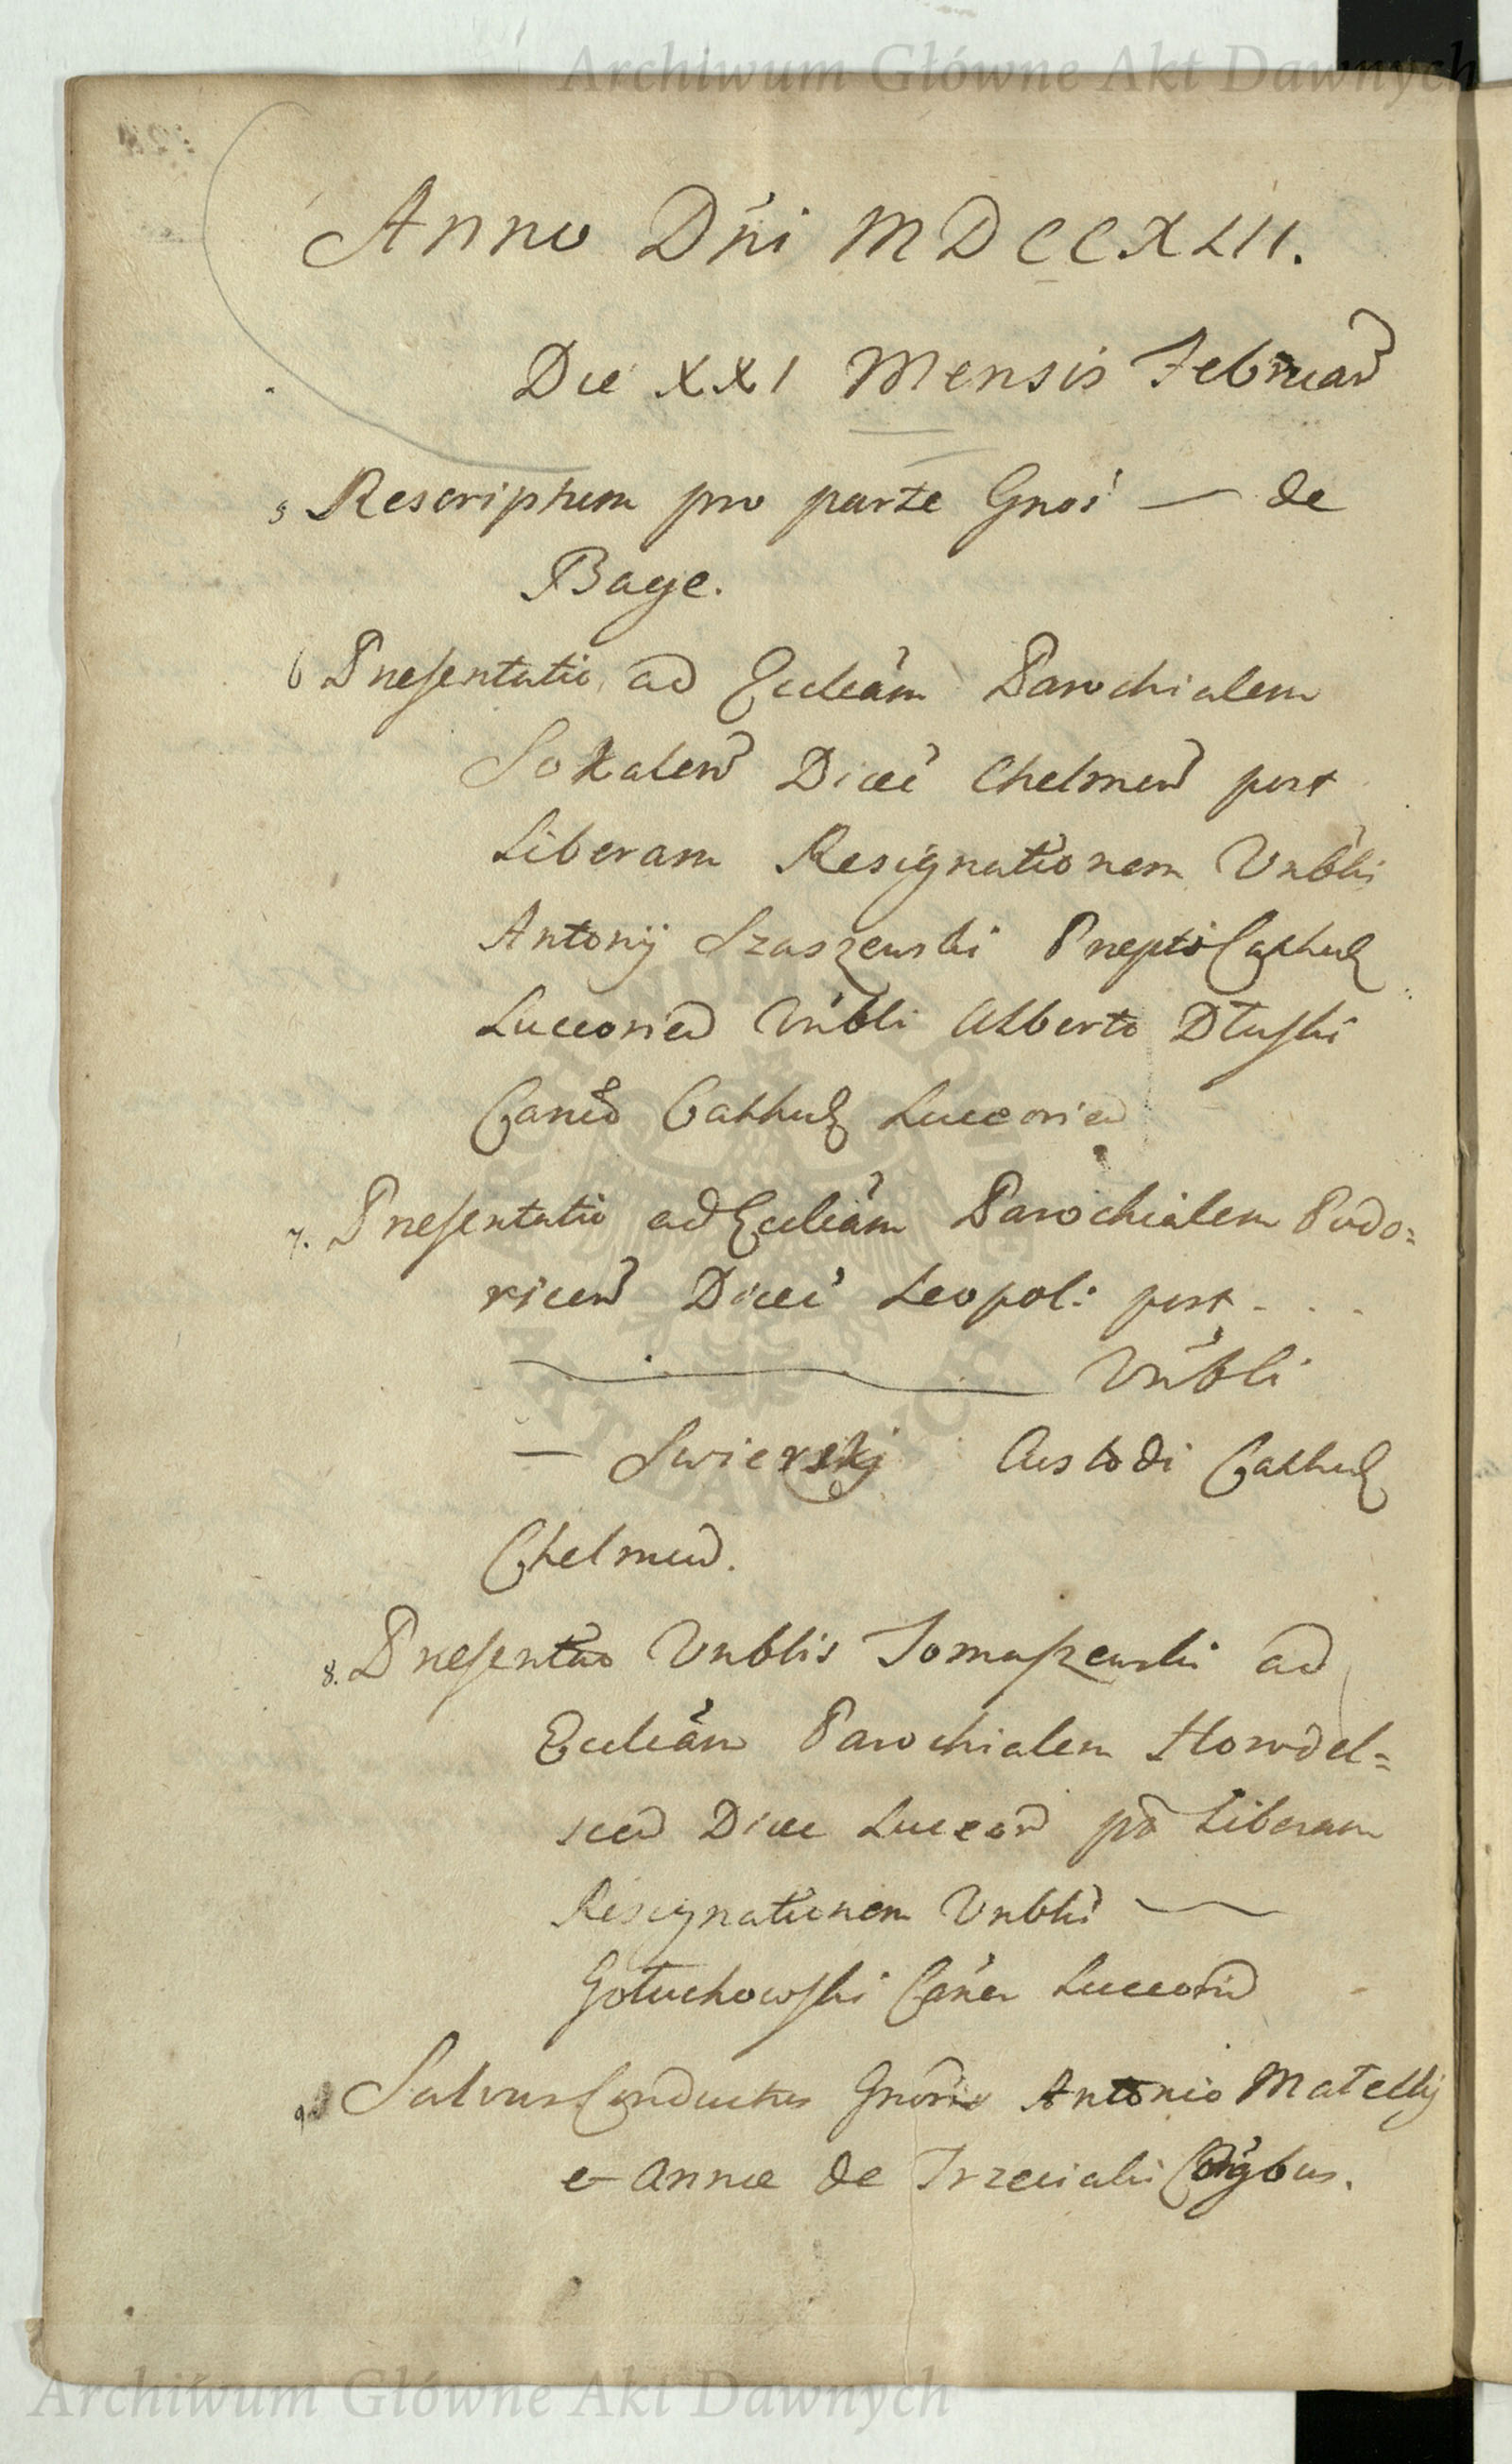 Archiwum Główne Akt Dawnych
Anno Dni MDCCXLII.
Die XXI Mensis Februar
5 Rescriptum pro parte Gnosi — de
Bage.
6 Presentatio ad Eccliam Parochialem
Sokalen Dicei Chelmen post
Liberam Resignationem Vnblis
Antonij Szaszewski Prepti Cathed
Luceorien Vnbli Alberto Dłuski
Canco Cathed Luceorien
7. Presentatio ad Eccliam Parochialem Podo=
ricen Dicei Leopol: post . . .
Vnbli
— Swierskj Custodi Cathed
Chelmen.
8. Presentatio Vnblis Tomaszewski ad
Eccliam Parochialem Horodel=
scen Dice Luceor pt Liberam
Resignationem Vnblis —
Gołuchowski Canci Luceorien
9. Salvus Conductus Gnoris Antonio Matelly
et Annæ de Trzeciaki Conjgbus.
ARCHIWUM GŁÓWNE
AKT DAWNYCH
Archiwum Główne Akt Dawnych